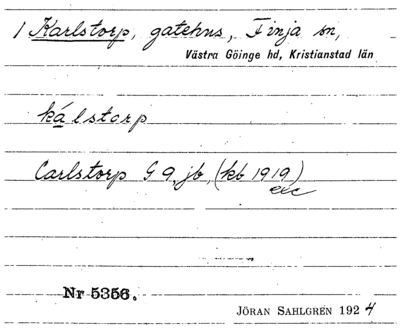 1 Karlstorp, gatehus, Finja sn,
Västra Göinge hd, Kristianstad län
kálstorp
Carlstorp G 9, jb, (kb 1919)
etc
Nr 5356.
JÖRAN SAHLGREN 1924